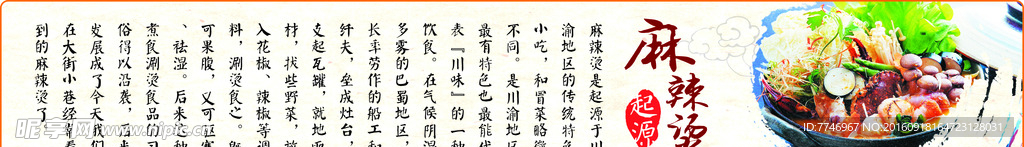 麻辣烫
起源
麻辣烫是起源于川
渝地区的传统特色
小吃，和冒菜略微
不同。是川渝地区
最有特色也最能代
表『川味』的一种
饮食。在气候阴湿
多雾的巴蜀地区，
长年劳作的船工和
纤夫，垒成灶台，
支起瓦罐，就地取
材，拔些野菜，放
入花椒、辣椒等调
料，涮烫食之。既
可果腹，又可驱寒
、祛湿。后来这种
煮食涮烫食品的习
俗得以沿袭，后来
发展成了今天我们
在大街小巷经常看
到的麻辣烫了。
昵享网 www.nipic.cn
ID:7746967 NO:20160918164723128031